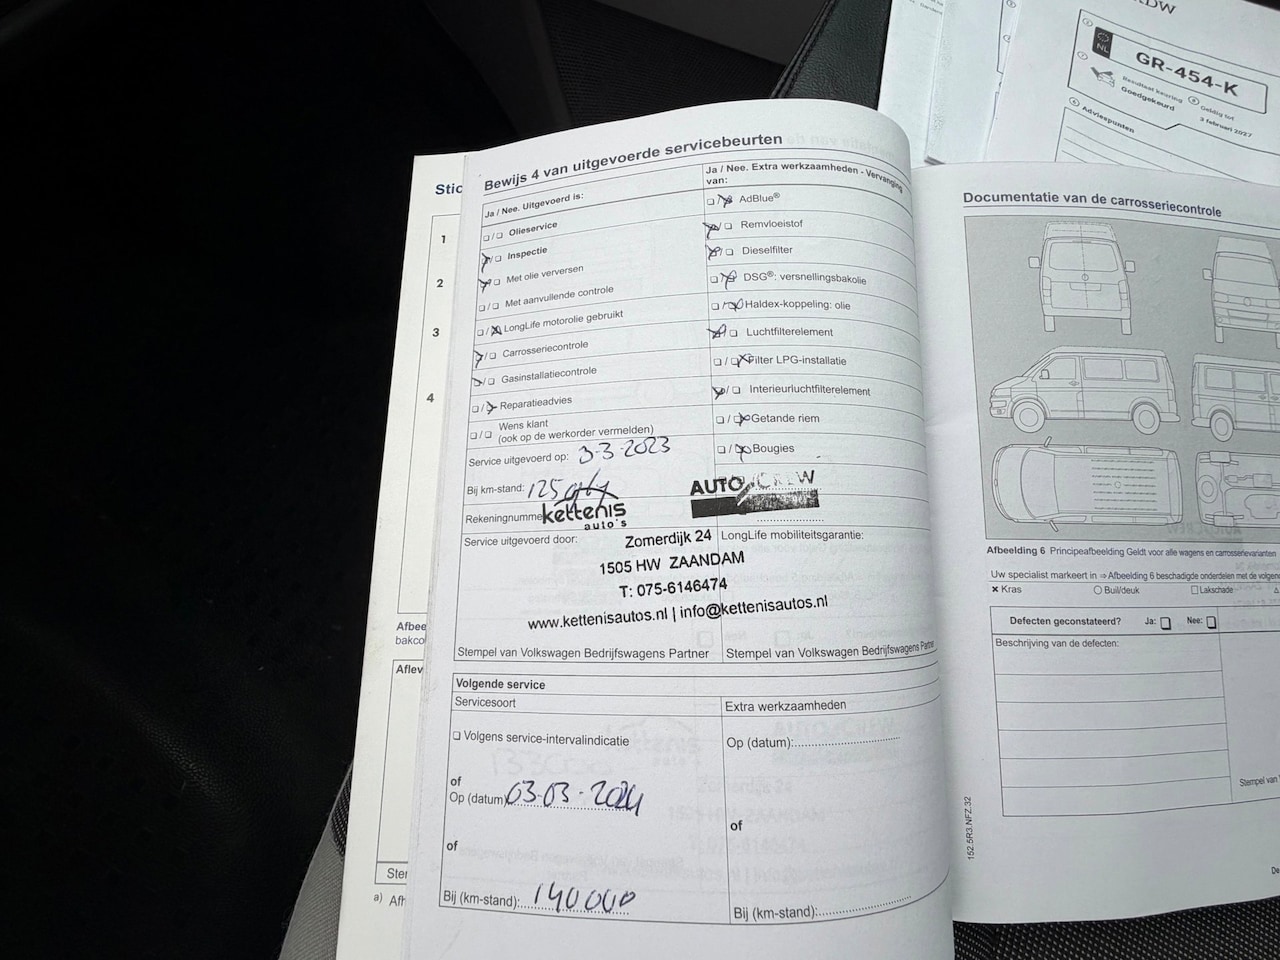 RDW
NL
GR-454-K
Resultaat keuring
Goedgekeurd
Geldig tot
3 februari 2027
Adviespunten
Stic
1
2
3
4
Afbee
bakco
Aflev
Ster
a) Afh
Bewijs 4 van uitgevoerde servicebeurten
Ja / Nee. Uitgevoerd is:
❑ / ❑ Olieservice
❑ / ❑ Inspectie
❑ / ❑ Met olie verversen
❑ / ❑ Met aanvullende controle
❑ / ❑ LongLife motorolie gebruikt
❑ / ❑ Carrosseriecontrole
❑ / ❑ Gasinstallatiecontrole
❑ / ❑ Reparatieadvies
❑ / ❑ Wens klant
(ook op de werkorder vermelden)
Service uitgevoerd op: 3-3-2023
Bij km-stand: 125
Rekeningnumme
kettenis
auto's
Service uitgevoerd door:
Ja / Nee. Extra werkzaamheden - Vervanging
van:
❑ / ❑ AdBlue®
❑ / ❑ Remvloeistof
❑ / ❑ Dieselfilter
❑ / ❑ DSG®: versnellingsbakolie
❑ / ❑ Haldex-koppeling: olie
❑ / ❑ Luchtfilterelement
❑ / ❑ Filter LPG-installatie
❑ / ❑ Interieurluchtfilterelement
❑ / ❑ Getande riem
❑ / ❑ Bougies
AUTO CREW
LongLife mobiliteitsgarantie:
Zomerdijk 24
1505 HW ZAANDAM
T: 075-6146474
www.kettenisautos.nl | info@kettenisautos.nl
Stempel van Volkswagen Bedrijfswagens Partner
Stempel van Volkswagen Bedrijfswagens Partner
Volgende service
Servicesoort
❑ Volgens service-intervalindicatie
of
Op (datum) 03-03-2024
of
Bij (km-stand): 140000
Extra werkzaamheden
Op (datum):
of
Bij (km-stand):
Documentatie van de carrosseriecontrole
Afbeelding 6 Principeafbeelding Geldt voor alle wagens en carrosserievarianten
Uw specialist markeert in ⇒ Afbeelding 6 beschadigde onderdelen met de volgen
× Kras
○ Buil/deuk
☐ Lakschade
Defecten geconstateerd? Ja: ❑ Nee: ❑
Beschrijving van de defecten:
Stempel van
152.5R3.NFZ.32
De